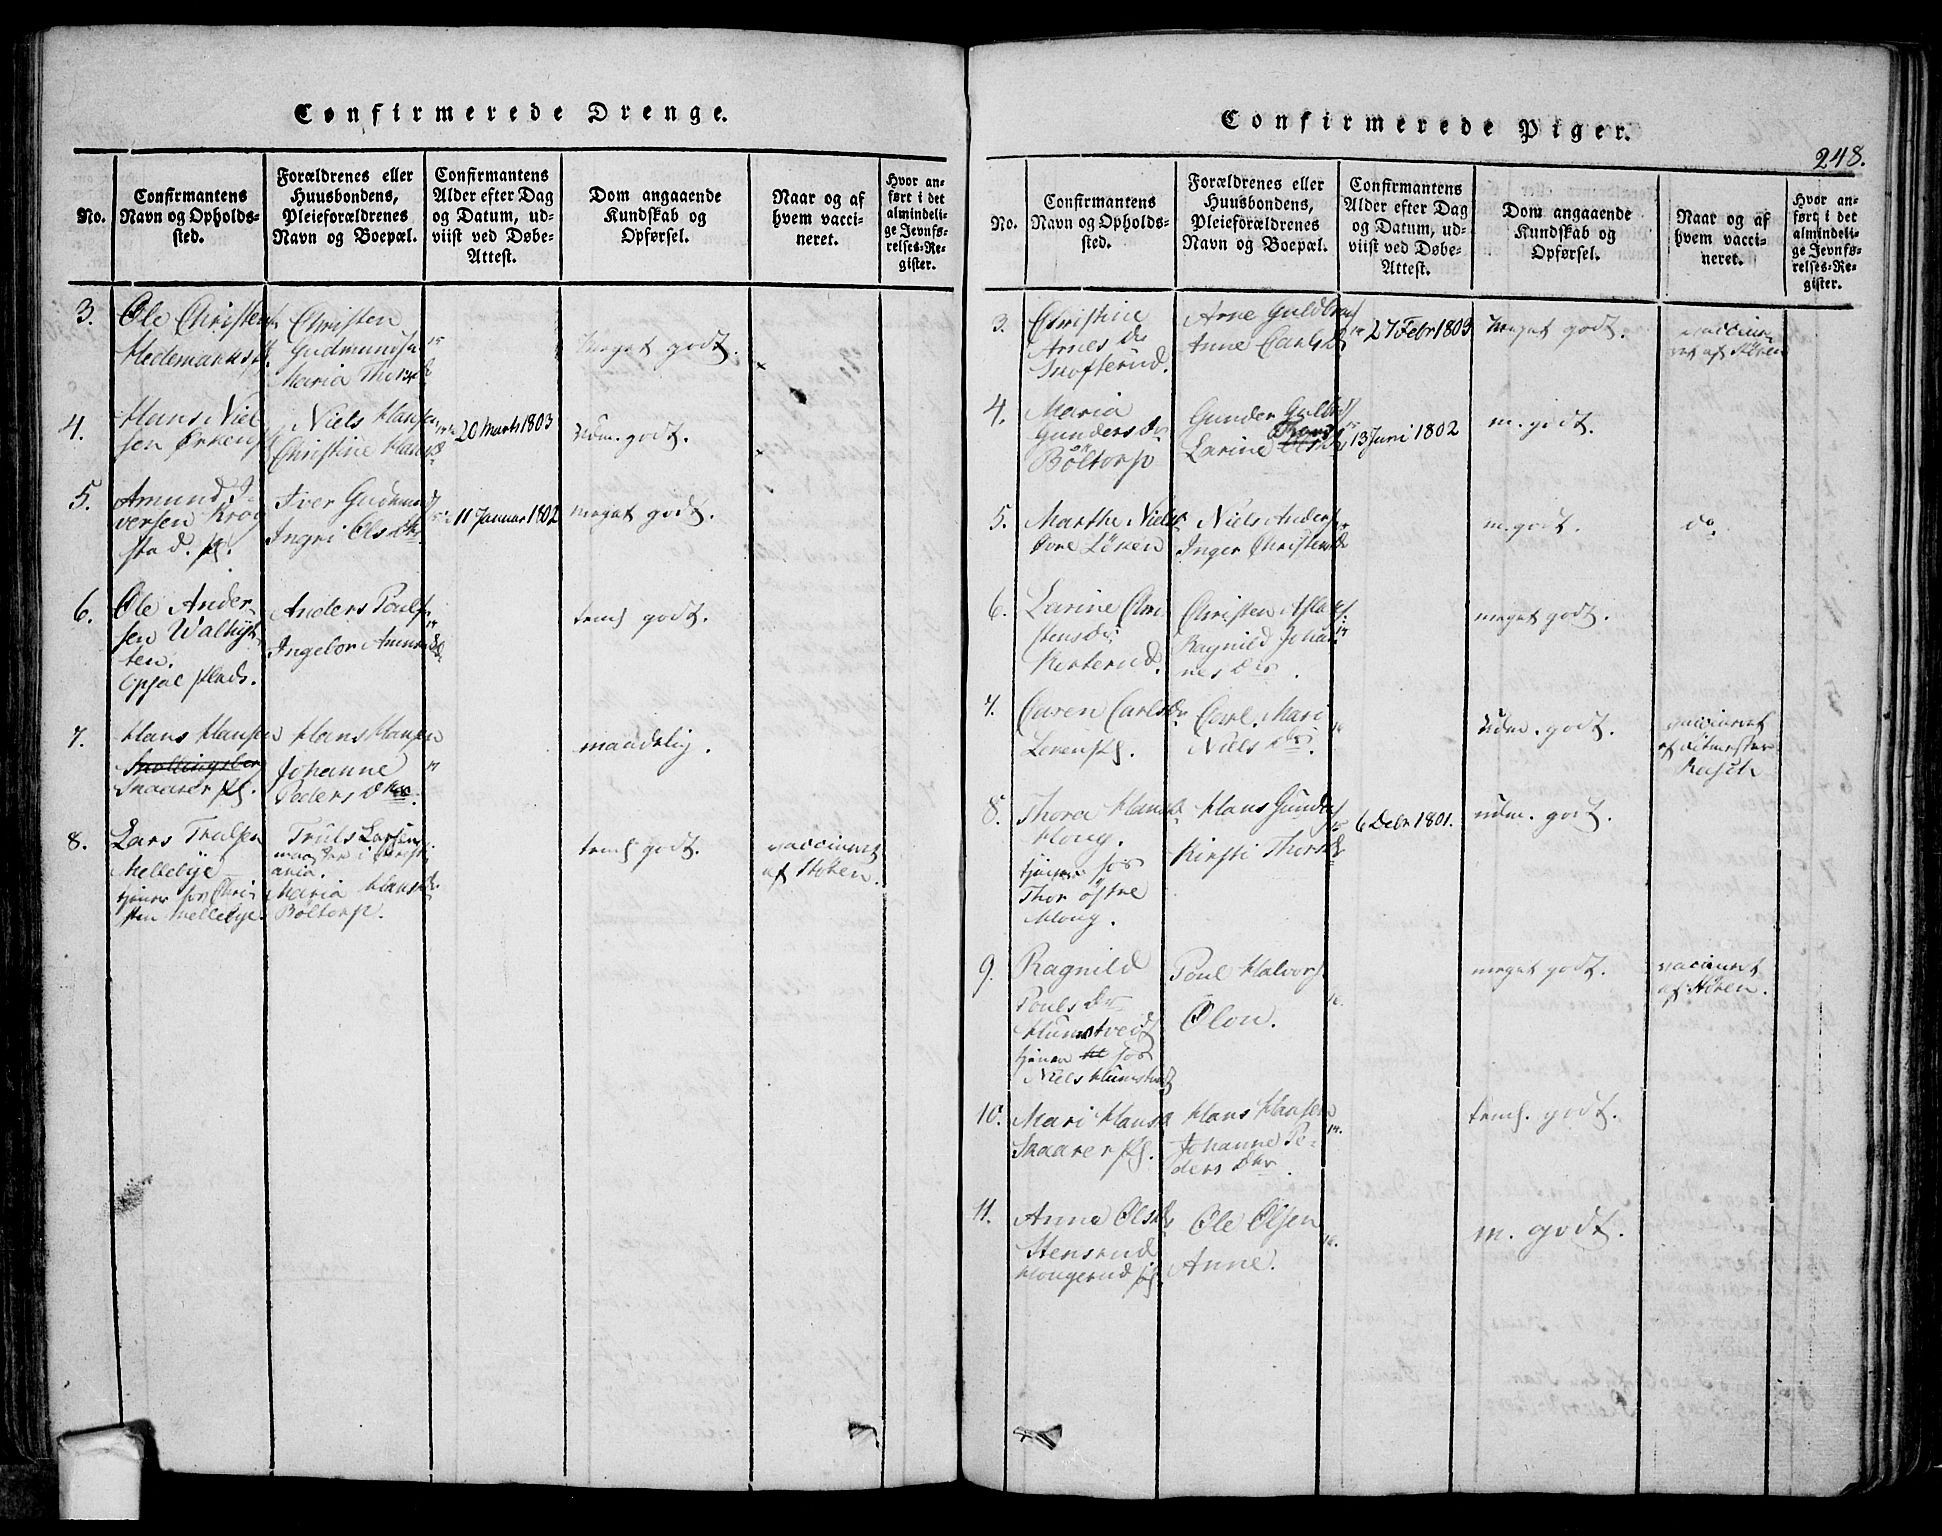 Confirmerede Drenge.
No.
Confirmantens Navn og Opholds-sted.
Forældrenes eller Huusbondens, Pleieforældrenes Navn og Boepæl.
Confirmantens Alder efter Dag og Datum, ud-viist ved Døbe-Attest.
Dom angaaende Kundskab og Opførsel.
Naar og af hvem vacci-neret.
Hvor an-ført i det almindeli-ge Jevnfø-relses-Re-gister.
3.
Ole Christens.
Christen
Gudmunds.
Maria Thors
15
Meget godt.
4.
Hans Niel
sen
Niels Hansen
Christine Hans
20 Marts 1803
udm. godt.
5.
Amund I
versen Krog
stad. pl.
Iver Gudmund
Ingri Olsdtr
11 Januar 1802
meget godt.
6.
Ole Ander-
sen
ten.
Opsal plads.
Anders Pouls.
14
temf godt.
7.
Hans Hansen
Skaarer pl.
Hans Hansen
Johanne
Peders Dtr.
14
maadelig.
8.
Lars Trulsen
Mellebye
tjener hos Chri
sten Mellebye.
Truls Larsen
i Christi
ania.
Maria Hans
Böltorp.
temf godt.
vaccineret
af Höken.
Confirmerede Piger.
248.
No.
Confirmantens Navn og Opholds-sted.
Forældrenes eller Huusbondens, Pleieforældrenes Navn og Boepæl.
Confirmantens Alder efter Dag og Datum, ud-viist ved Døbe-Attest.
Dom angaaende Kundskab og Opførsel.
Naar og af hvem vacci-neret.
Hvor an-ført i det almindeli-ge Jevnfø-relses-Re-gister.
3.
Christine
Arnes Dr
Snofterud.
Arne Guldbra
Anne Carls D
14
27 Febr 1803
Meget godt.
vaccine
ret af Höken
4.
Maria
Gunders Dr
Böltorp
Gunder Guldb
Thors
Larine
15
13 Juni 1802
m. godt.
5.
Marthe Niels
Övre Löken
Niels Anders
Inger Christens
m. godt.
do.
6.
Larine Chri
stensdr.
Kerterud.
Christen Aslaks
Ragnild Johan
nes Dr.
14
meget godt.
7.
Caren Carlsdr
Loren pl.
Carl. Mari
Niels Dr.
udm. godt.
vaccineret
af Ritmester
Rasch
8.
Thora Hans
Hong.
tjener hos
Thor östre
Hong.
Hans Gunders
Kirsti Thors
15
6 Debr 1801.
udm. godt.
9.
Ragnild
Pouls Dr
tjener hos
Niels
Poul Halvors
Olou.
meget godt.
vaccineret
af Höken.
10.
Mari Hans
Skaarer pl.
Hans Hansen
Johanne Pe-
ders Dtr.
14.
temf. godt.
11.
Anne Ols
Stensrud
Hougerud pl.
Ole Olsen
Anne.
m. godt.